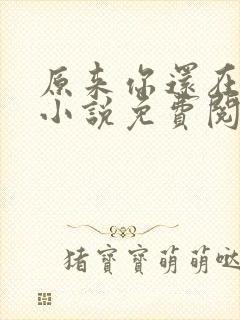 原来你還在
小說免費閱
猪寶寶萌萌哒